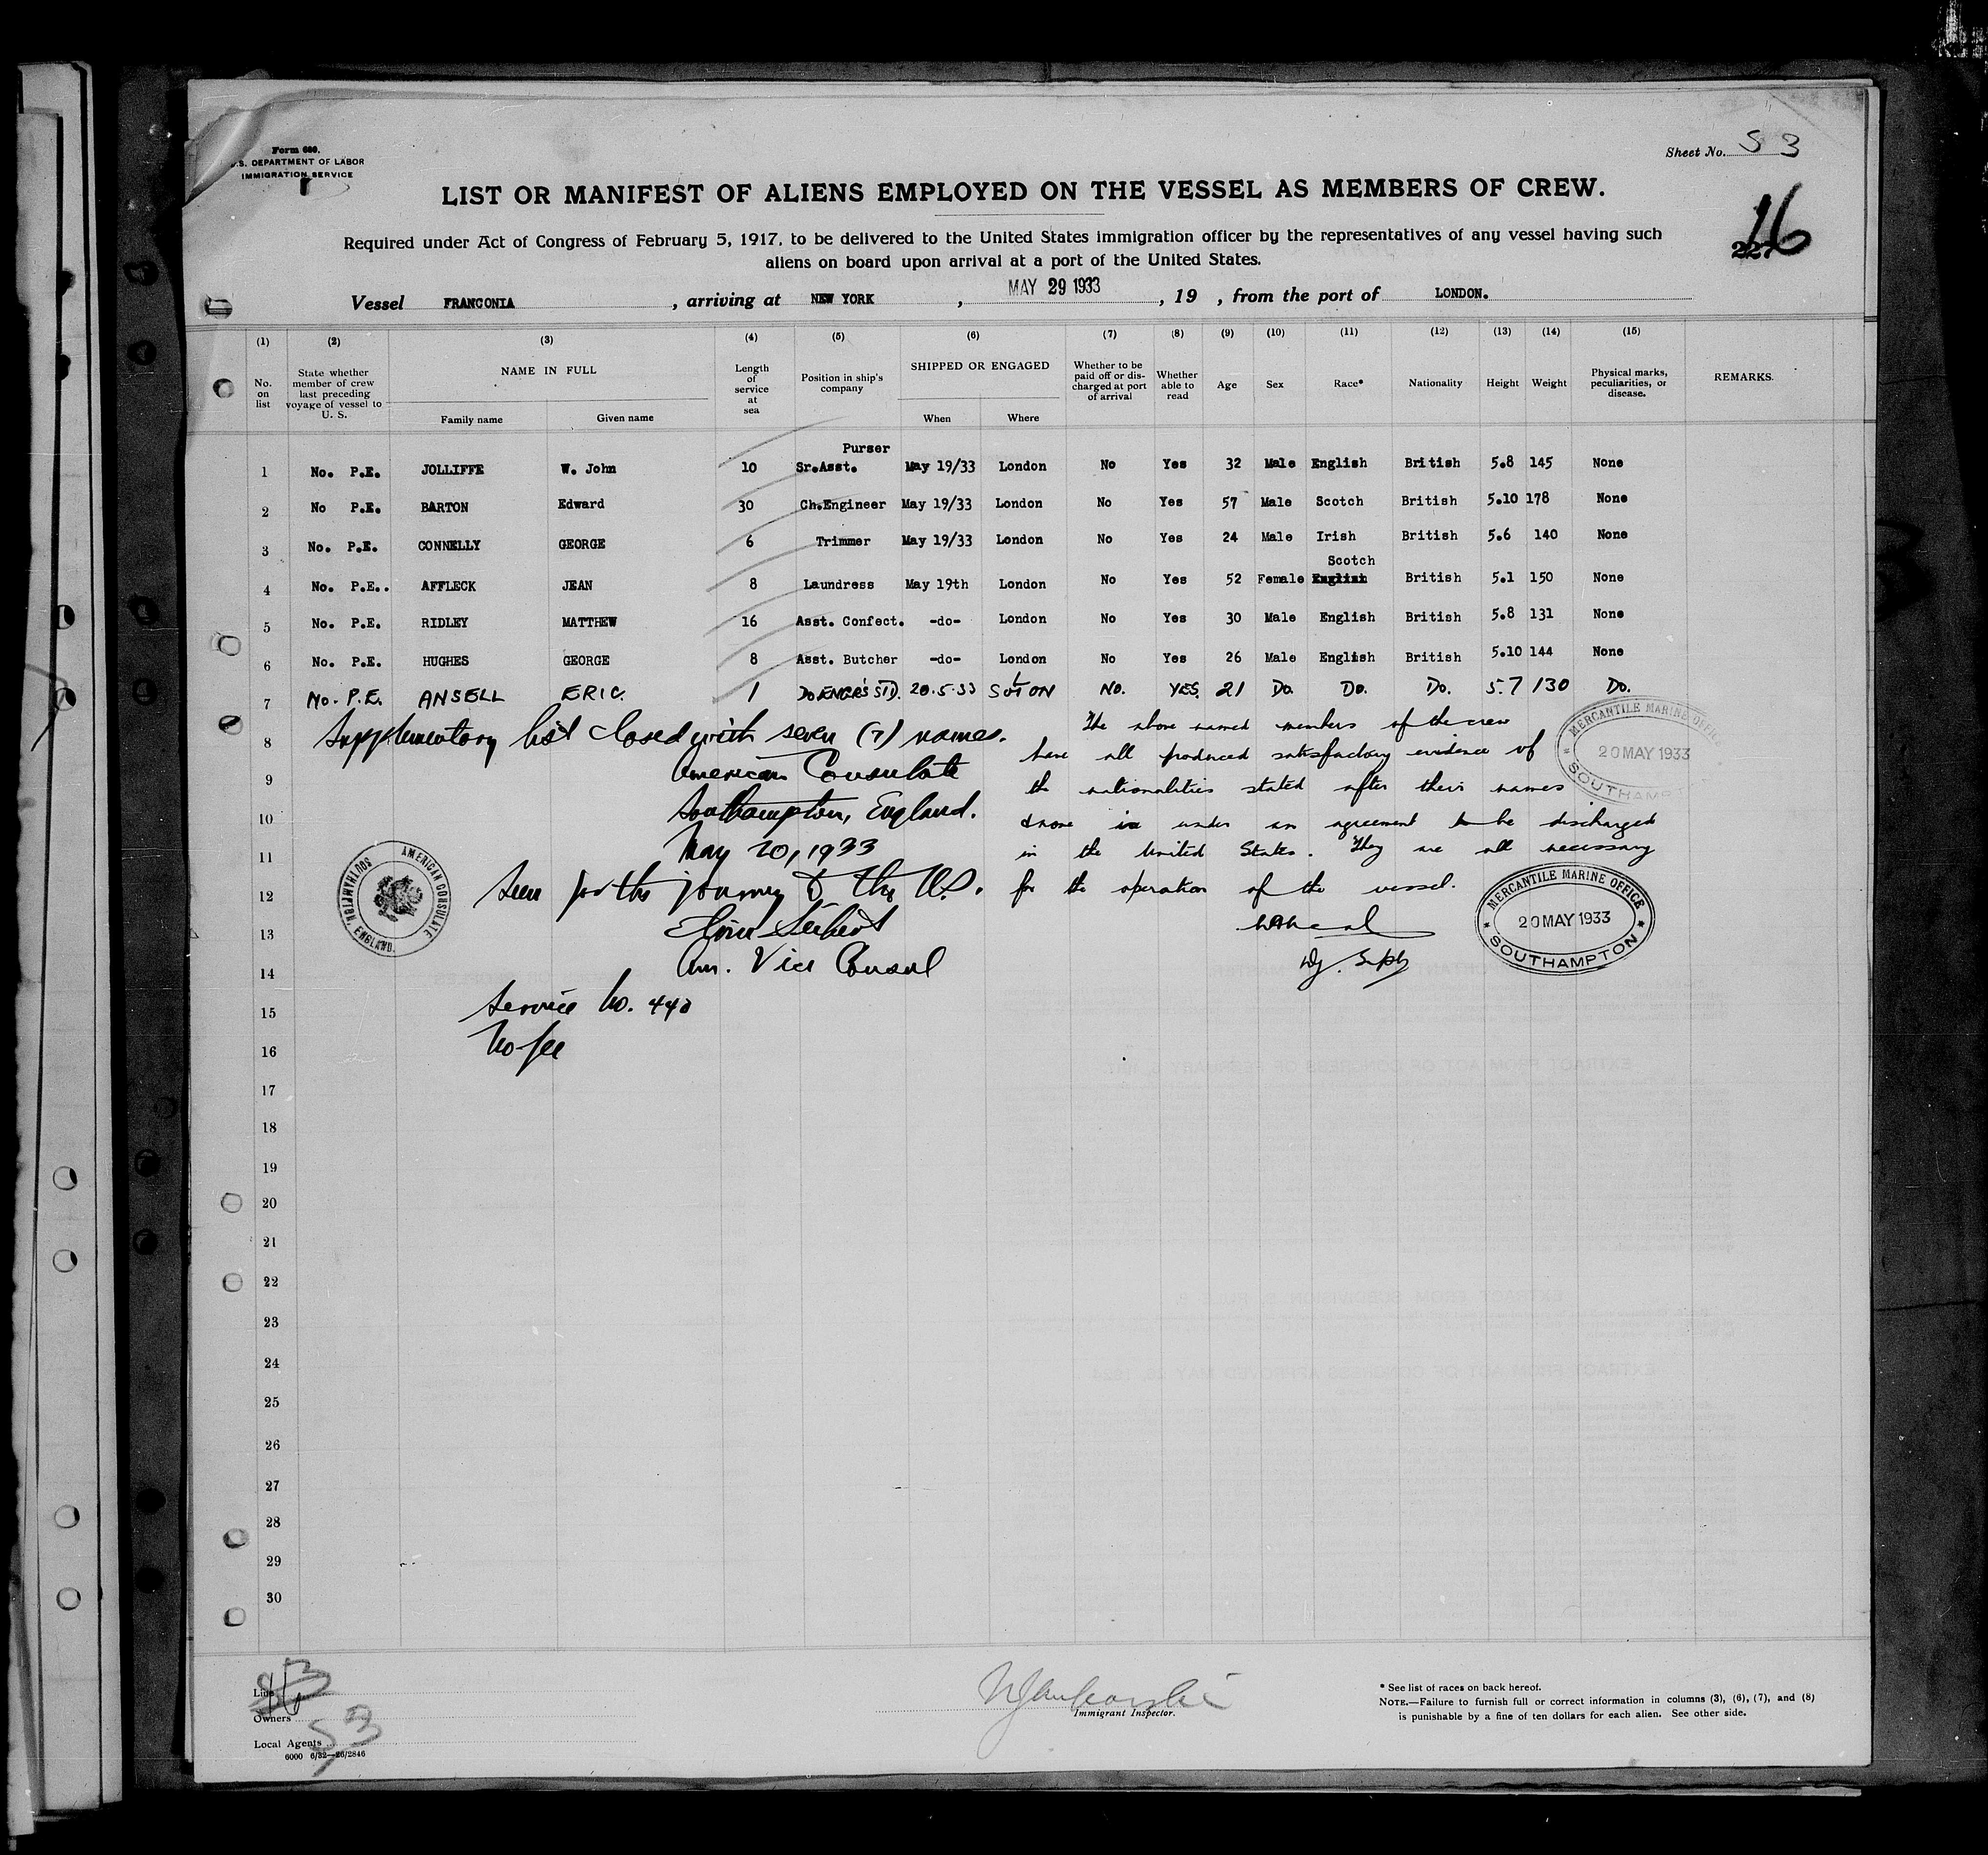 Form 680.
U.S. DEPARTMENT OF LABOR
IMMIGRATION SERVICE
Sheet No. S 3
LIST OR MANIFEST OF ALIENS EMPLOYED ON THE VESSEL AS MEMBERS OF CREW.
16
Required under Act of Congress of February 5, 1917, to be delivered to the United States immigration officer by the representatives of any vessel having such
aliens on board upon arrival at a port of the United States.
Vessel FRANCONIA, arriving at NEW YORK, MAY 29 1933, 19 , from the port of LONDON.
(1) (2) (3) (4) (5) (6) (7) (8) (9) (10) (11) (12) (13) (14) (15)
No. on list
State whether member of crew last preceding voyage of vessel to U. S.
NAME IN FULL
Family name Given name
Length of service at sea
Position in ship's company
SHIPPED OR ENGAGED
When Where
Whether to be paid off or discharged at port of arrival
Whether able to read
Age Sex Race* Nationality Height Weight
Physical marks, peculiarities, or disease.
REMARKS.
Purser
1 No. P.E. JOLLIFFE W. John 10 Sr.Asst. May 19/33 London No Yes 32 Male English British 5.8 145 None
2 No P.E. BARTON Edward 30 Ch.Engineer May 19/33 London No Yes 57 Male Scotch British 5.10 178 None
3 No. P.E. CONNELLY GEORGE 6 Trimmer May 19/33 London No Yes 24 Male Irish British 5.6 140 None
Scotch
4 No. P.E.. AFFLECK JEAN 8 Laundress May 19th London No Yes 52 Female English British 5.1 150 None
5 No. P.E. RIDLEY MATTHEW 16 Asst. Confect. -do- London No Yes 30 Male English British 5.8 131 None
6 No. P.E. HUGHES GEORGE 8 Asst. Butcher -do- London No Yes 26 Male English British 5.10 144 None
7 No. P.E. ANSELL ERIC. 1 Do ENGR'S STD. 20.5.33 SOTON NO. YES. 21 Do. Do. Do. 5.7 130 Do.
8 Supplementary list closed with seven (7) names.
9 American Consulate
10 Southampton, England.
11 May 20, 1933
12 Seen for the journey to the U.S.
13
14 Am. Vice Consul
15 Service No. 440
16 No fee
The above named members of the crew
have all produced satisfactory evidence of
the nationalities stated after their names
& none is under an agreement to be discharged
in the United States. They are all necessary
for the operation of the vessel.
Dy. Supt
MERCANTILE MARINE OFFICE
20 MAY 1933
SOUTHAMPTON
MERCANTILE MARINE OFFICE
20 MAY 1933
SOUTHAMPTON
AMERICAN CONSULATE
SOUTHAMPTON, ENGLAND.
17
18
19
20
21
22
23
24
25
26
27
28
29
30
Line
Owners
Local Agents
53
6000 6/32—26/2846
Immigrant Inspector.
* See list of races on back hereof.
NOTE.—Failure to furnish full or correct information in columns (3), (6), (7), and (8)
is punishable by a fine of ten dollars for each alien. See other side.